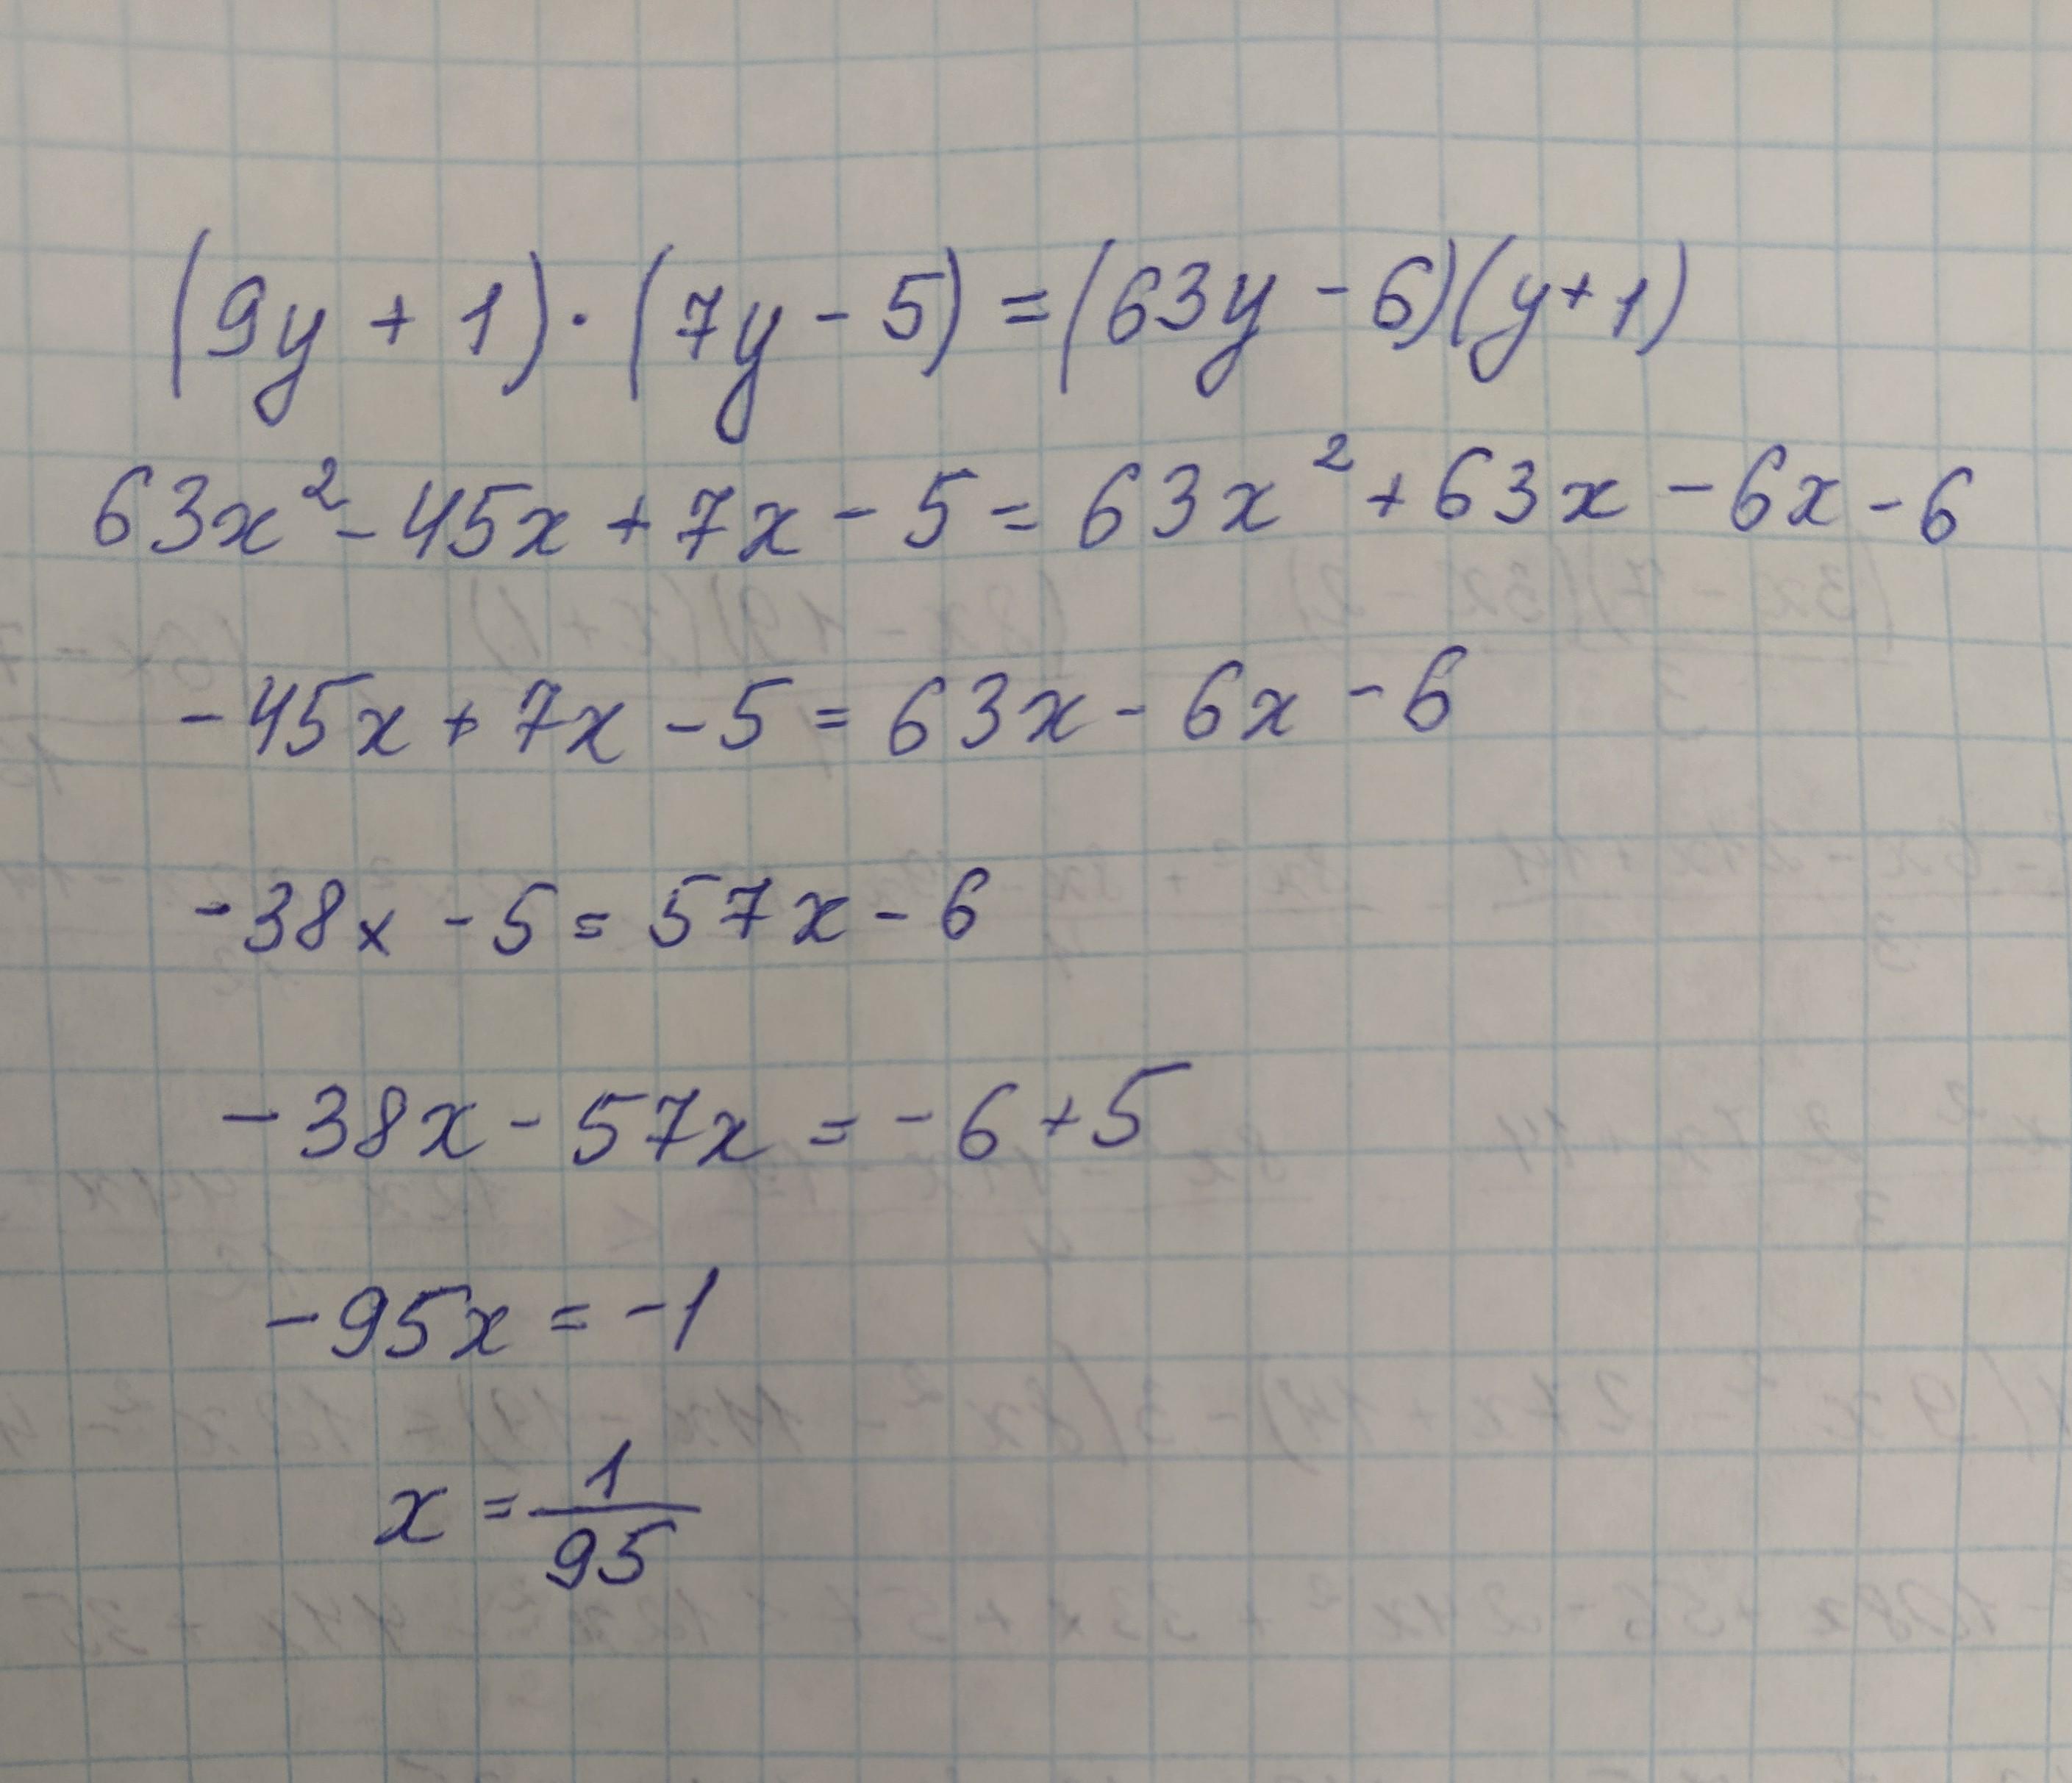 (9y + 1) · (7y - 5) = (63y - 6)(y + 1)
63x² - 45x + 7x - 5 = 63x² + 63x - 6x - 6
-45x + 7x - 5 = 63x - 6x - 6
-38x - 5 = 57x - 6
-38x - 57x = -6 + 5
-95x = -1
x = 1/95